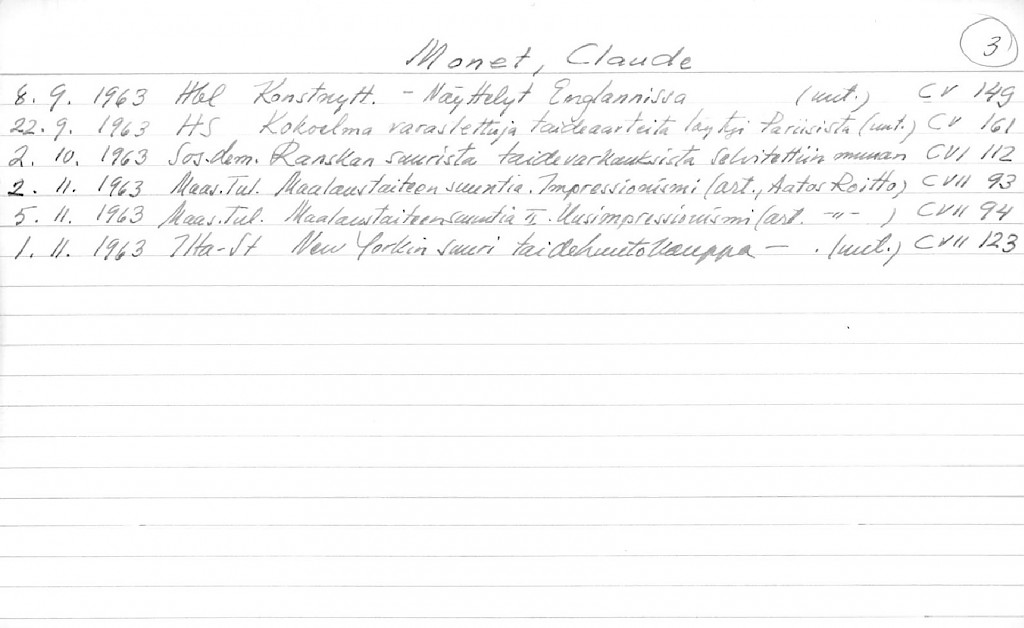 3
Monet, Claude
8. 9. 1963 Hbl Konstnytt. - Näyttelyt Englannissa (uut.) CV 149
22. 9. 1963 HS Kokoelma varastettuja taideaarteita löytyi Pariisista (uut.) CV 161
2. 10. 1963 Sos.dem. Ranskan suurista taidevarkauksista selvitettiin muuan CVI 112
2. 11. 1963 Maas.Tul. Maalaustaiteen suuntia. Impressionismi (art., Aatos Roitto) CVII 93
5. 11. 1963 Maas.Tul. Maalaustaiteen suuntia II. Uusimpressionismi (art. -"- ) CVII 94
1. 11. 1963 Ilta-St New Yorkin suuri taidehuutokauppa - . (uut.) CVII 123